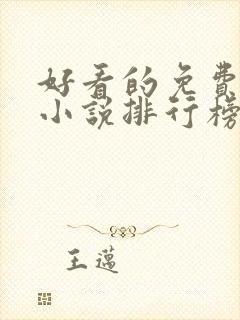 好看的免費
小說排行榜
王邁